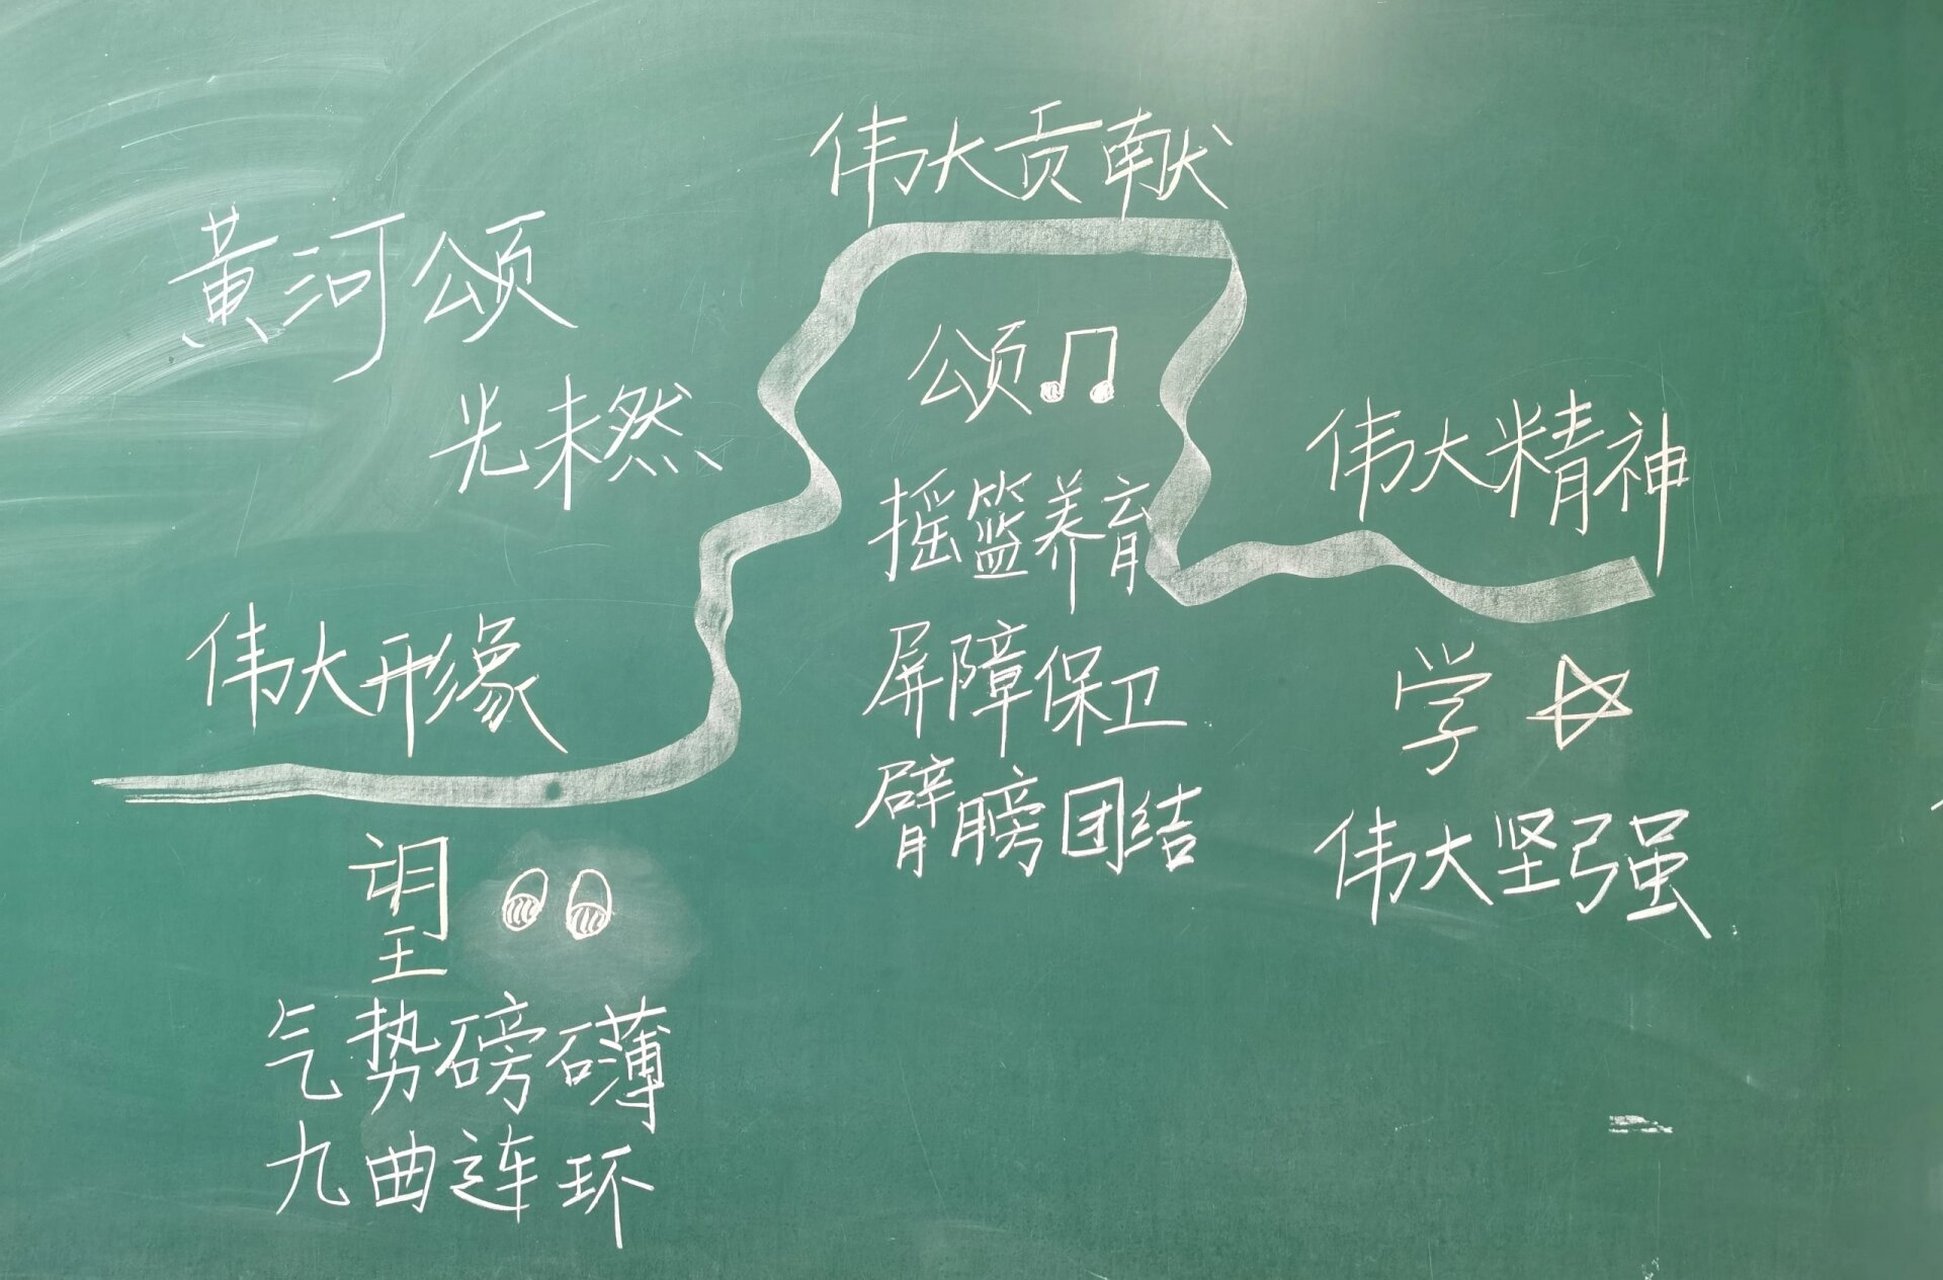 黄河颂
光未然
伟大形缘
望
气势磅礴
九曲连环
伟大贡献
颂
摇篮养育
屏障保卫
臂膀团结
伟大精神
学
伟大坚强